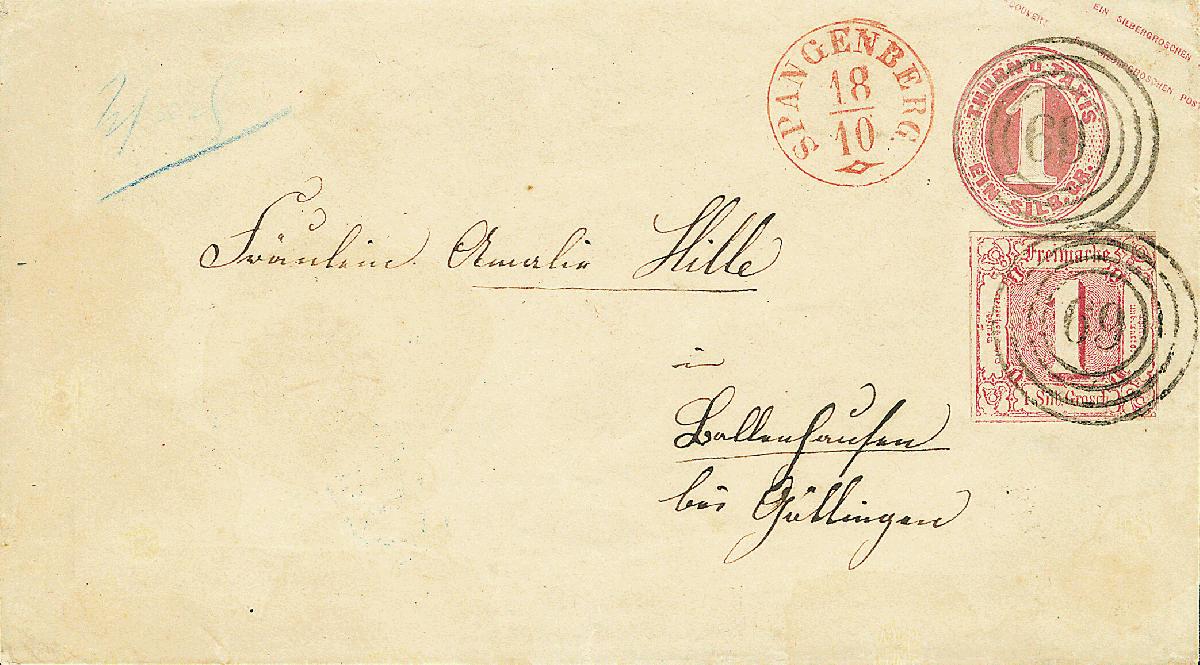 COUVERT
EIN SILBERGROSCHEN
SILBERGROSCHEN POST
SPANGENBERG
18
10
THURN U. TAXIS
1
EIN SILB. GR.
69
Fräulein Amalie Hille
Freimarke
1
69
1. Silb. Grosch.
in
Ballenhausen
bei Göttingen